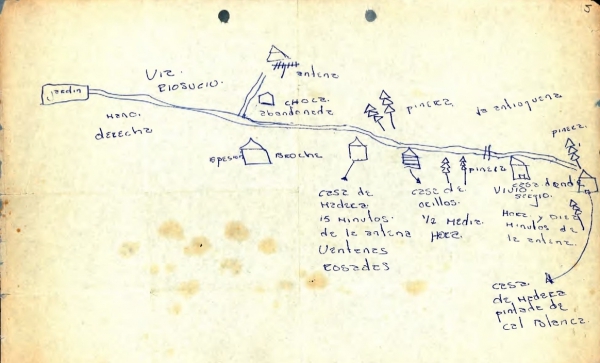 5
Jardin
Via.
RIOSUCIO.
MANO.
derecha
antena
CHOZA
abandonada
BROCHE
PINERA
la antioqueña
PINERA
PINERA
casa de
Madera
15 Minutos.
de la antena
Ventanas
rosadas
casa de
orillos.
1/2 Media.
Hora.
casa donde
VIVIO
sergio.
Hora. y Diez
Minutos de
la antena.
casa.
de Madera
pintada de
cal Blanca.